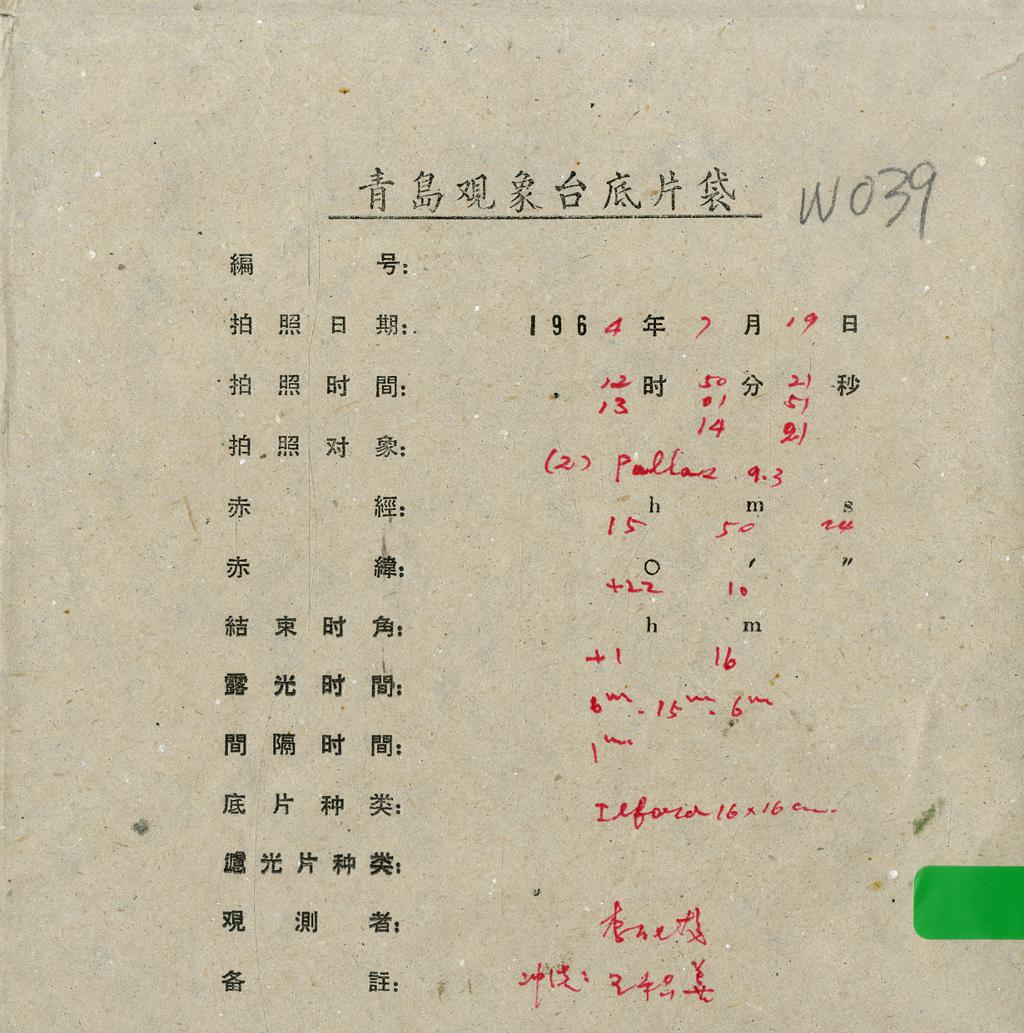 青島观象台底片袋 W039
編号:
拍照日期: 1964年7月19日
拍照时間: 12时50分21秒
13 01 51
14 21
拍照对象: (2) Pallas 9.3
赤經: h m s
15 50 24
赤緯: ○ ′ ″
+22 10
結束时角: h m
+1 16
露光时間: 6m - 15m - 6m
間隔时間: 1m
底片种类: Ilford 16×16 cm.
濾光片种类:
观測者: 李
备註: 冲洗: 王